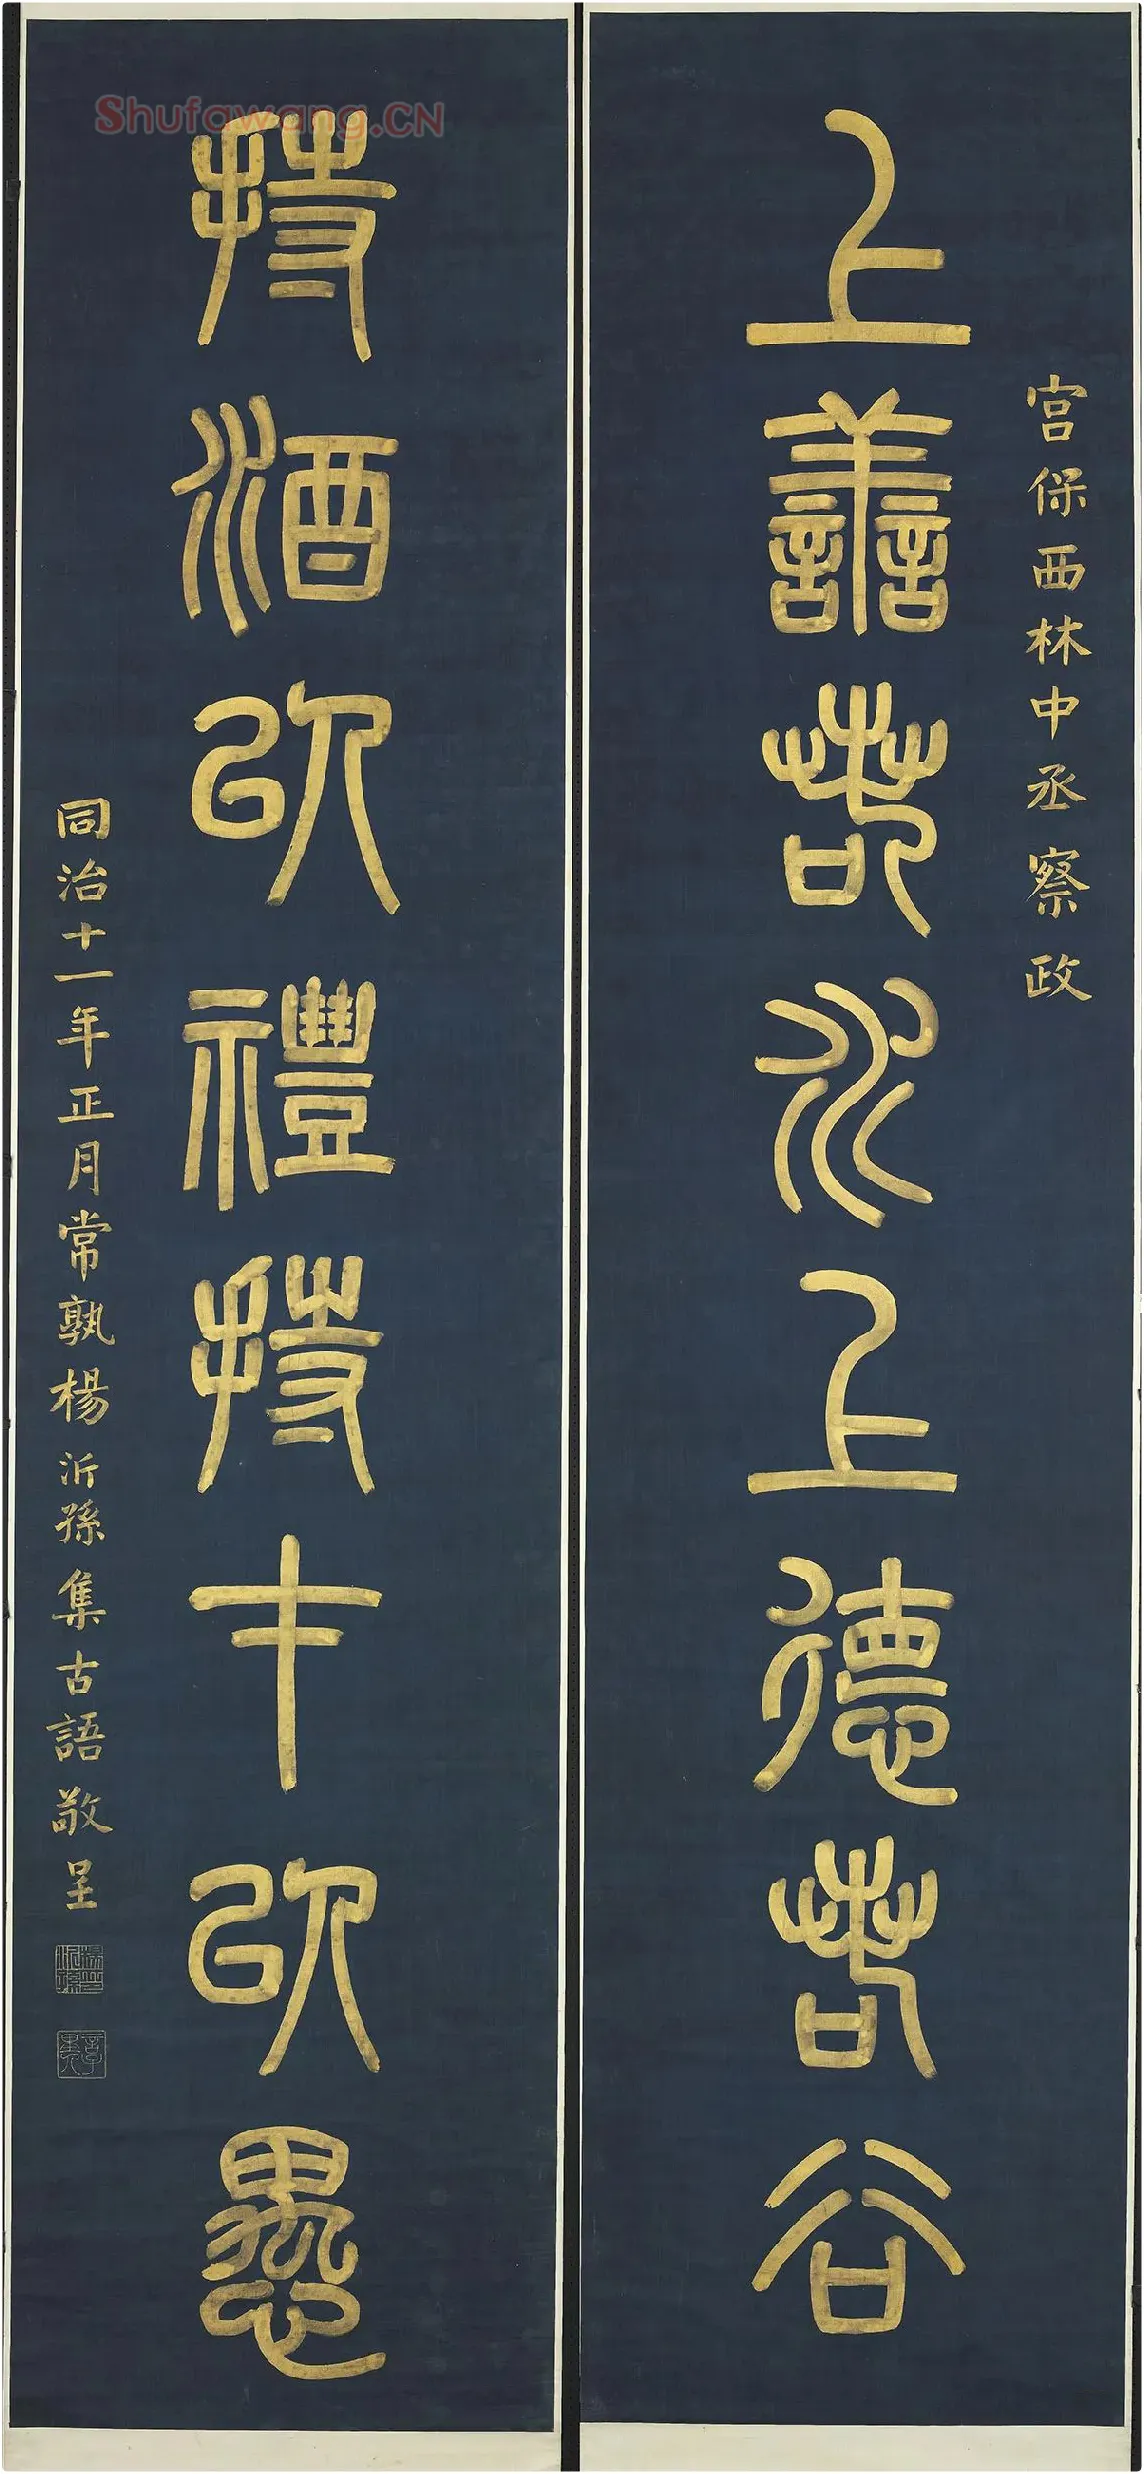 宫保西林中丞察政
上善若水上德若谷
持酒以禮持才以愚
同治十一年正月常孰楊沂孫集古語敬呈
楊印沂孫
Shufawang.CN